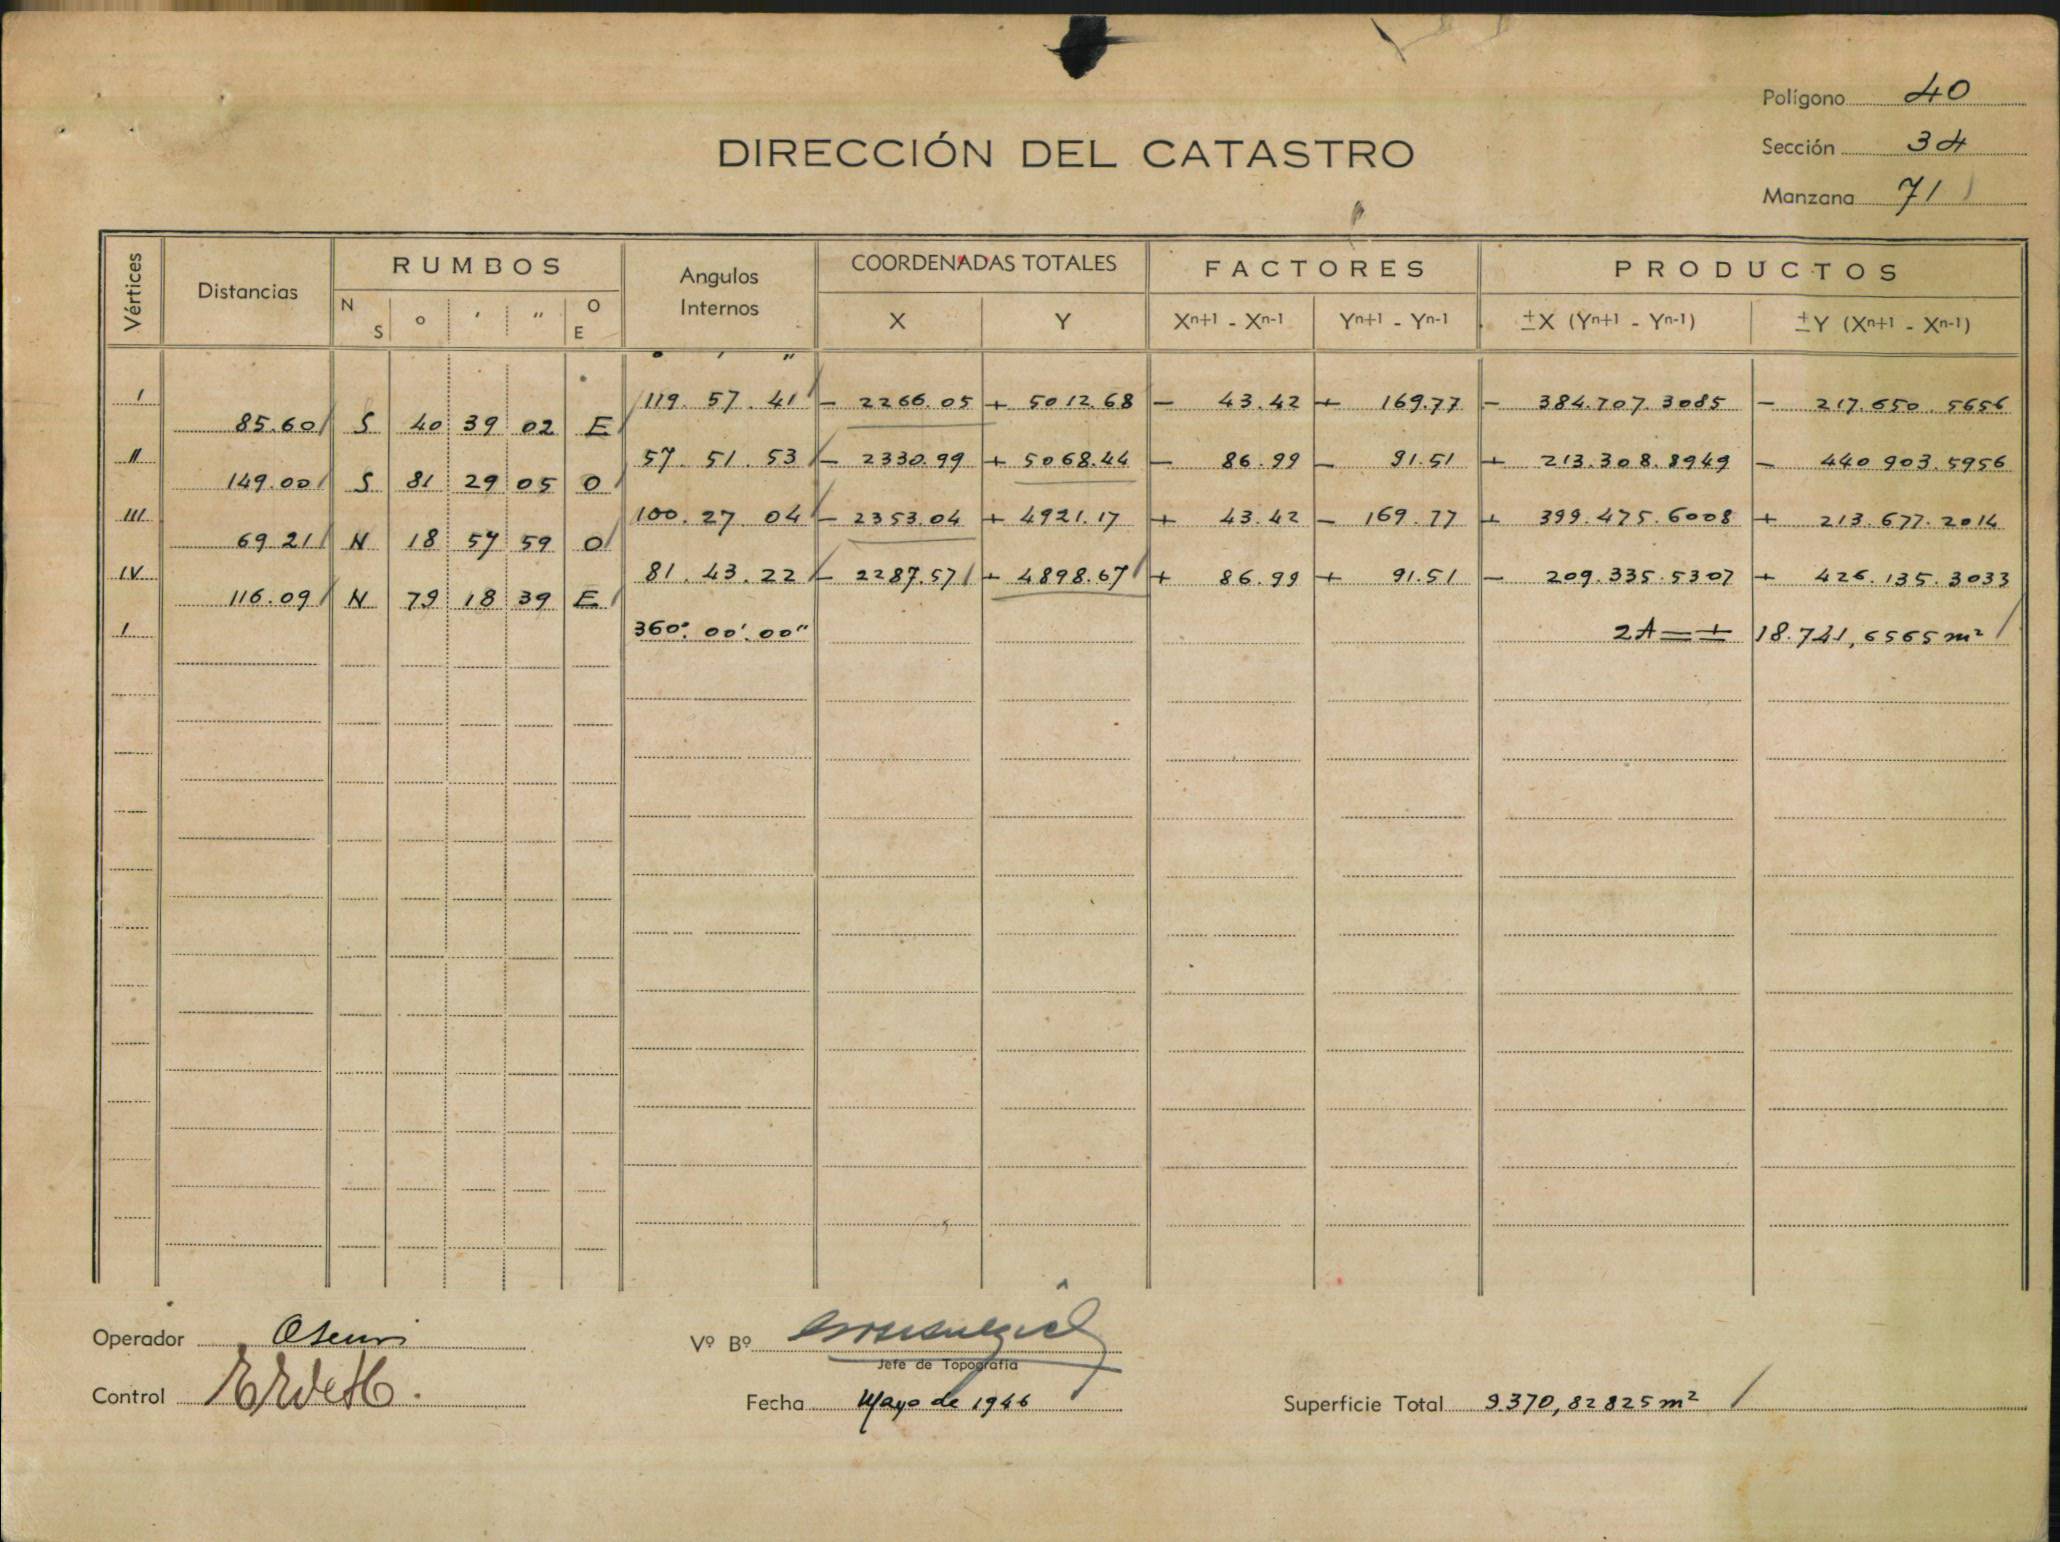 Polígono 40
DIRECCIÓN DEL CATASTRO
Sección 34
Manzana 71
Vértices Distancias RUMBOS Angulos Internos COORDENADAS TOTALES FACTORES PRODUCTOS
N S o ' " O E X Y Xn+1 - Xn-1 Yn+1 - Yn-1 ±X (Yn+1 - Yn-1) ±Y (Xn+1 - Xn-1)
o ' "
I 119. 57. 41 - 2266.05 + 5012.68 - 43.42 + 169.77 - 384.707.3085 - 217.650.5656
85.60 S 40 39 02 E
II 57. 51. 53 - 2330.99 + 5068.44 - 86.99 - 91.51 + 213.308.8949 - 440 903.5956
149.00 S 81 29 05 O
III 100. 27 04 - 2353.04 + 4921.17 + 43.42 - 169.77 + 399.475.6008 + 213.677.2014
69.21 N 18 57 59 O
IV 81. 43. 22 - 2287.57 + 4898.67 + 86.99 + 91.51 - 209.335.5307 + 426.135.3033
116.09 N 79 18 39 E
I 360°. 00'. 00" 2A = + 18.741,6565 m²
Operador
Vº Bº
Jefe de Topografía
Control
Fecha Mayo de 1946 Superficie Total 9.370,82825 m²